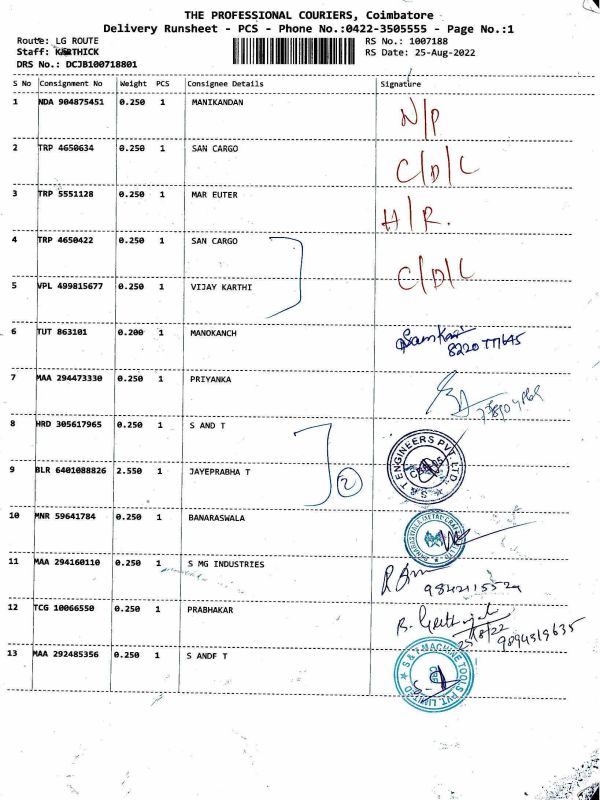 THE PROFESSIONAL COURIERS, Coimbatore
Delivery Runsheet - PCS - Phone No.:0422-3505555 - Page No.:1
Route: LG ROUTE RS No.: 1007188
Staff: KARTHICK RS Date: 25-Aug-2022
DRS No.: DCJB100718801
S No Consignment No Weight PCS Consignee Details Signature
1 NDA 904875451 0.250 1 MANIKANDAN N/P
2 TRP 4650634 0.250 1 SAN CARGO C/D/C
3 TRP 5551128 0.250 1 MAR EUTER H/R.
4 TRP 4650422 0.250 1 SAN CARGO
C/D/C
5 VPL 499815677 0.250 1 VIJAY KARTHI
6 TUT 863101 0.200 1 MANOKANCH
7 MAA 294473330 0.250 1 PRIYANKA
8 HRD 305617965 0.250 1 S AND T
S & T ENGINEERS PVT. LTD.
9 BLR 6401088826 2.550 1 JAYEPRABHA T 2
10 MNR 59641784 0.250 1 BANARASWALA
11 MAA 294160110 0.250 1 S MG INDUSTRIES
12 TCG 10066550 0.250 1 PRABHAKAR
25/8/22
9894519635
13 MAA 292485356 0.250 1 S ANDF T
S & T MACHINE TOOLS PVT. LIMITED